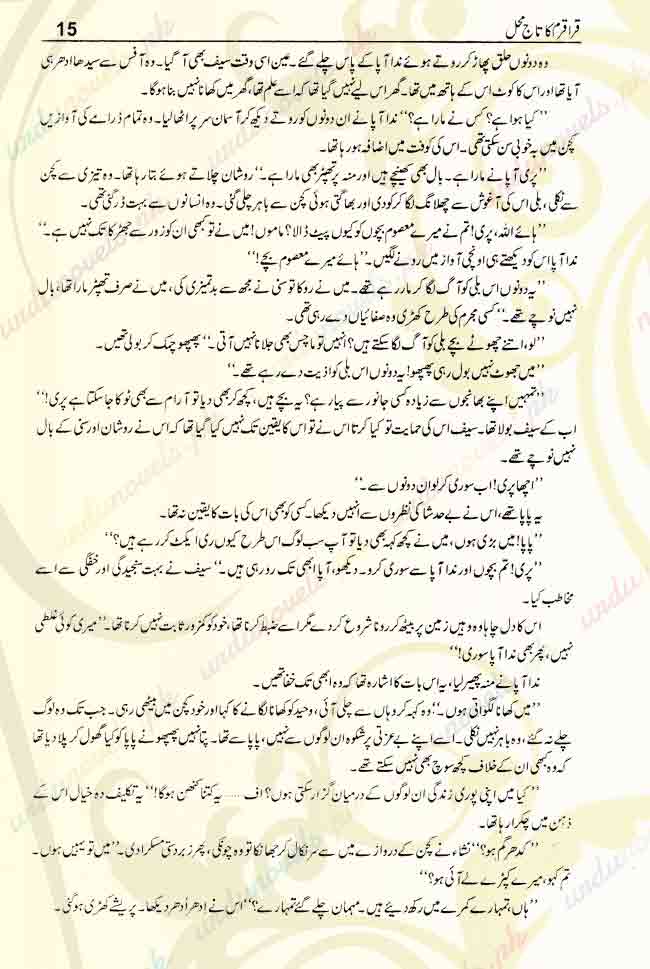 قراقرم کا تاج محل
15
وہ دونوں حلق پھاڑ کر روتے ہوئے ندا آپا کے پاس چلے گئے۔ عین اسی وقت سیف بھی آ گیا۔ وہ آفس سے سیدھا ادھر ہی
آیا تھا اور اس کا کوٹ اس کے ہاتھ میں تھا۔ گھر اس لیے نہیں گیا تھا کہ اسے علم تھا، گھر میں کھانا نہیں بنا ہوگا۔
’’کیا ہوا ہے؟ کس نے مارا ہے؟‘‘ ندا آپا نے ان دونوں کو روتے دیکھ کر آسمان سر پر اٹھا لیا۔ وہ تمام ڈرامے کی آوازیں
کچن میں بہ خوبی سن سکتی تھی۔ اس کی کوفت میں اضافہ ہو رہا تھا۔
’’پری آپا نے مارا ہے۔ بال بھی کھینچے ہیں اور منہ پر تھپڑ بھی مارا ہے۔‘‘ روشان چلاتے ہوئے بتا رہا تھا۔ وہ تیزی سے کچن
سے نکلی، بلی اس کی آغوش سے چھلانگ لگا کر کودی اور بھاگتی ہوئی کچن سے باہر چلی گئی۔ وہ انسانوں سے بہت ڈر گئی تھی۔
’’ہائے اللہ، پری! تم نے میرے معصوم بچوں کو کیوں پیٹ ڈالا؟ ماموں! میں نے تو کبھی ان کو زور سے جھڑکا تک نہیں ہے۔‘‘
ندا آپا اس کو دیکھتے ہی اونچی آواز میں رونے لگیں۔ ’’ہائے میرے معصوم بچے!‘‘
’’یہ دونوں اس بلی کو آگ لگا کر مار رہے تھے۔ میں نے روکا تو سنی نے مجھ سے بدتمیزی کی، میں نے صرف تھپڑ مارا تھا، بال
نہیں نوچے تھے۔‘‘ کسی مجرم کی طرح کھڑی وہ صفائیاں دے رہی تھی۔
’’لو، اتنے چھوٹے بچے بلی کو آگ لگا سکتے ہیں؟ انہیں تو ماچس بھی جلانا نہیں آتی۔‘‘ پھپھو چمک کر بولی تھیں۔
’’میں جھوٹ نہیں بول رہی پھپھو! یہ دونوں اس بلی کو اذیت دے رہے تھے۔‘‘
’’تمہیں اپنے بھانجوں سے زیادہ کسی جانور سے پیار ہے؟ یہ بچے ہیں، کچھ کر بھی دیا تو آرام سے بھی ٹوکا جا سکتا ہے پری!‘‘
اب کے سیف بولا تھا۔ سیف اس کی حمایت تو کیا کرتا اس نے تو اس کا یقین تک نہیں کیا گیا تھا کہ اس نے روشان اور سنی کے بال
نہیں نوچے تھے۔
’’اچھا پری! اب سوری کر لو ان دونوں سے۔‘‘
یہ پاپا تھے، اس نے بے حد شاکی نظروں سے انہیں دیکھا۔ کسی کو بھی اس کی بات کا یقین نہ تھا۔
’’پاپا! میں بڑی ہوں، میں نے کچھ کہہ بھی دیا تو آپ سب لوگ اس طرح کیوں ری ایکٹ کر رہے ہیں؟‘‘
’’پری! تم بچوں اور ندا آپا سے سوری کرو۔ دیکھو، آپا ابھی تک رو رہی ہیں۔‘‘ سیف نے بہت سنجیدگی اور خفگی سے اسے
مخاطب کیا۔
اس کا دل چاہا وہ وہیں زمین پر بیٹھ کر رونا شروع کر دے مگر اسے ضبط کرنا تھا، خود کو کمزور ثابت نہیں کرنا تھا۔ ’’میری کوئی غلطی
نہیں، پھر بھی ندا آپا سوری!‘‘
ندا آپا نے منہ پھیر لیا، یہ اس بات کا اشارہ تھا کہ وہ ابھی تک خفا تھیں۔
’’میں کھانا لگواتی ہوں۔‘‘ وہ کہہ کر وہاں سے چلی آئی، وحید کو کھانا لگانے کا کہا اور خود کچن میں بیٹھی رہی۔ جب تک وہ لوگ
چلے نہ گئے، وہ باہر نہیں نکلی۔ اسے اپنے بے عزتی پر شکوہ ان لوگوں سے نہیں، پاپا سے تھا۔ پتا نہیں پھپھو نے پاپا کو کیا گھول کر پلا دیا تھا
کہ وہ کبھی ان کے خلاف کچھ سوچ بھی نہیں سکتے تھے۔
’’کیا میں اپنی پوری زندگی ان لوگوں کے درمیان گزار سکتی ہوں؟ اف ...... یہ کتنا کٹھن ہوگا!‘‘ یہ تکلیف دہ خیال اس کے
ذہن میں چکرا رہا تھا۔
’’کدھر گم ہو؟‘‘ نشاء نے کچن کے دروازے میں سے سر نکال کر جھانکا تو وہ چونکی، پھر زبردستی مسکرا دی۔ ’’میں تو یہیں ہوں۔
تم کہو، میرے کپڑے لے آئی ہو؟‘‘
’’ہاں، تمہارے کمرے میں رکھ دیئے ہیں۔ مہمان چلے گئے تمہارے؟‘‘ اس نے اِدھر اُدھر دیکھا۔ پریشے کھڑی ہو گئی۔
urdunovels.pk